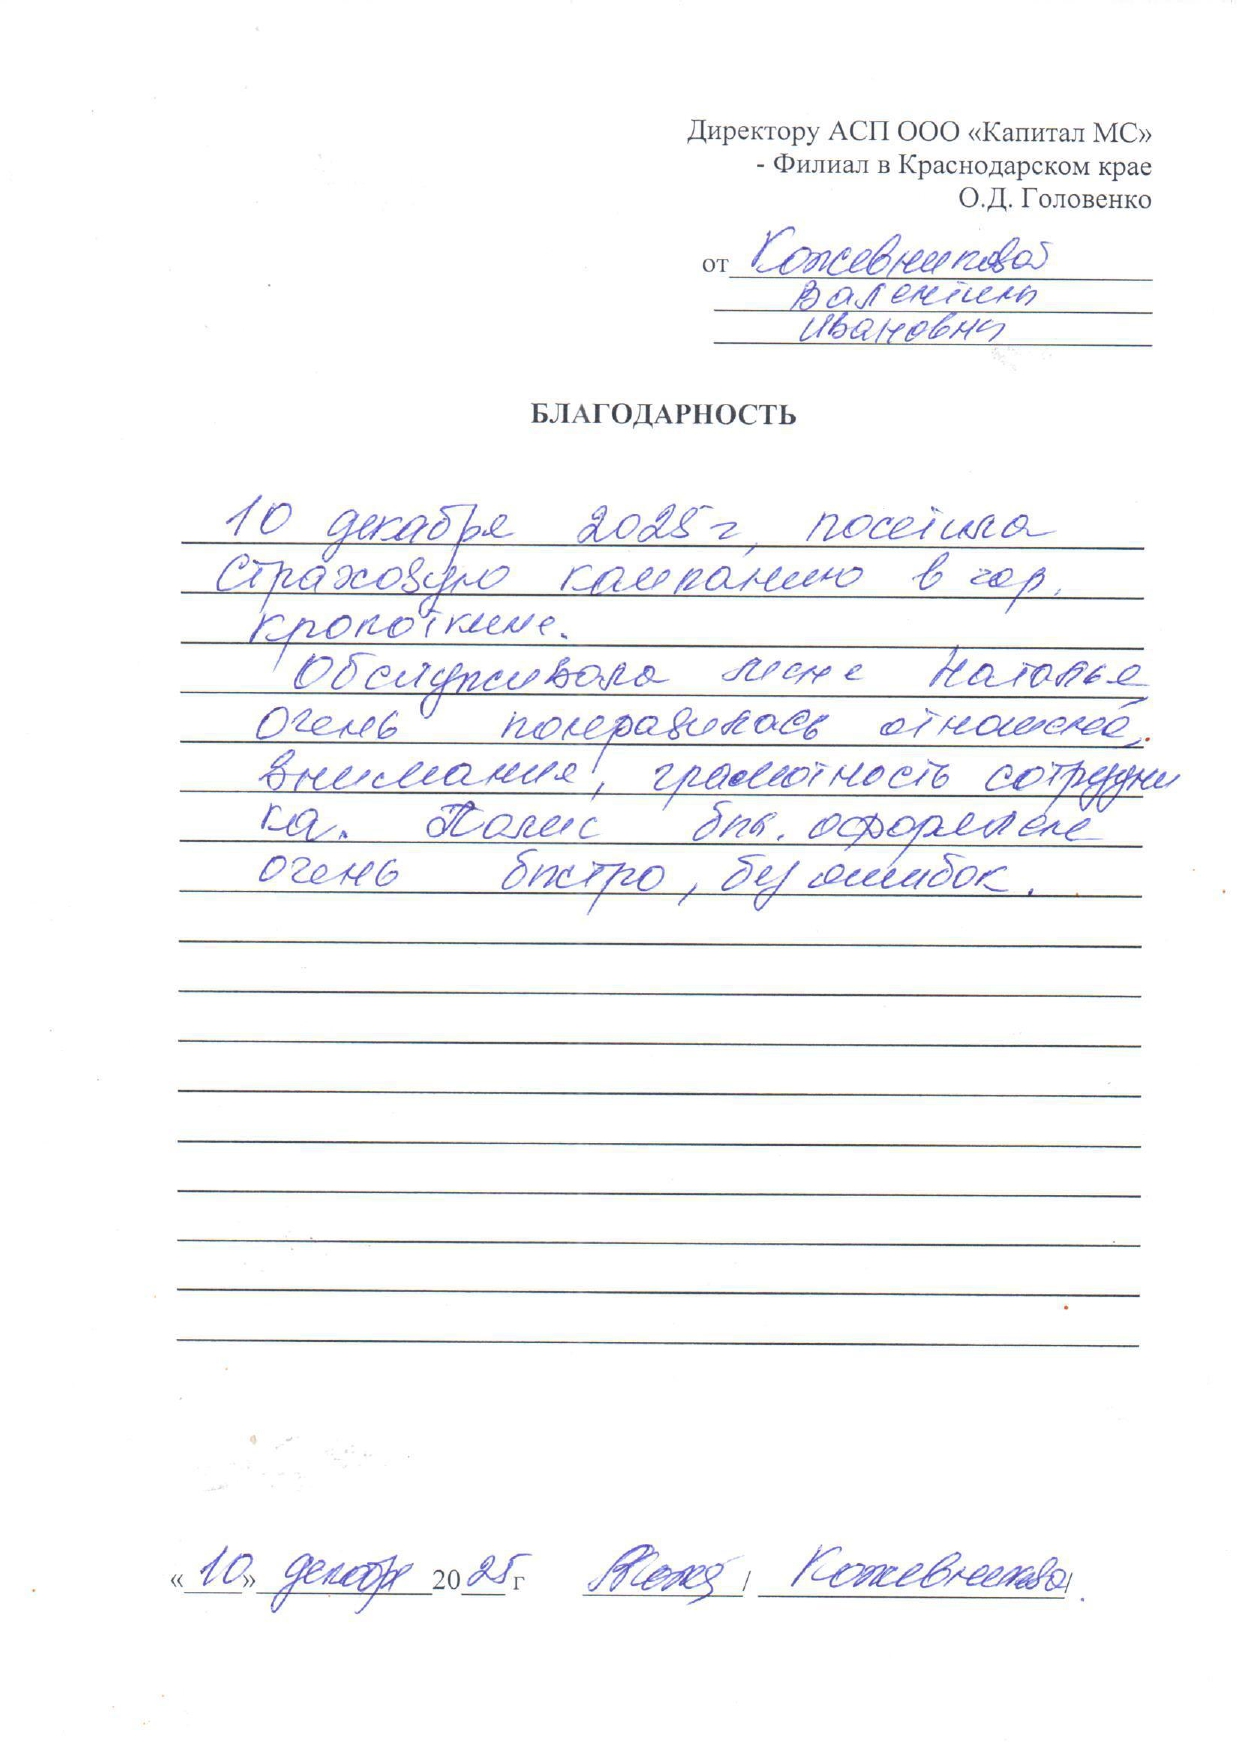 Директору АСП ООО «Капитал МС»
- Филиал в Краснодарском крае
О.Д. Головенко
от Кожевниковой
Валентины
Ивановны
БЛАГОДАРНОСТЬ
10 декабря 2025 г, посетила
Страховую компанию в гор.
Кропоткине.
Обслуживала меня Наталья
Очень понравилось отношение,
внимание, грамотность сотрудни
ка. Полис был оформлен
очень быстро, без ошибок.
«10» декабря 2025 г Кож / Кожевникова/